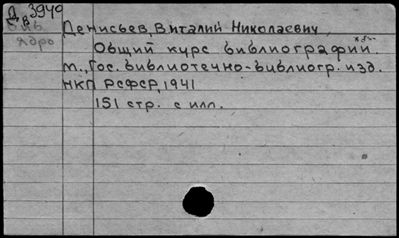 Д 3949
Ядро
Денисьев, Виталий Николаевич
Общий курс библиографии.
М., Гос. библиотечно-библиогр. изд.
НКП РСФСР, 1941
151 стр. с илл.